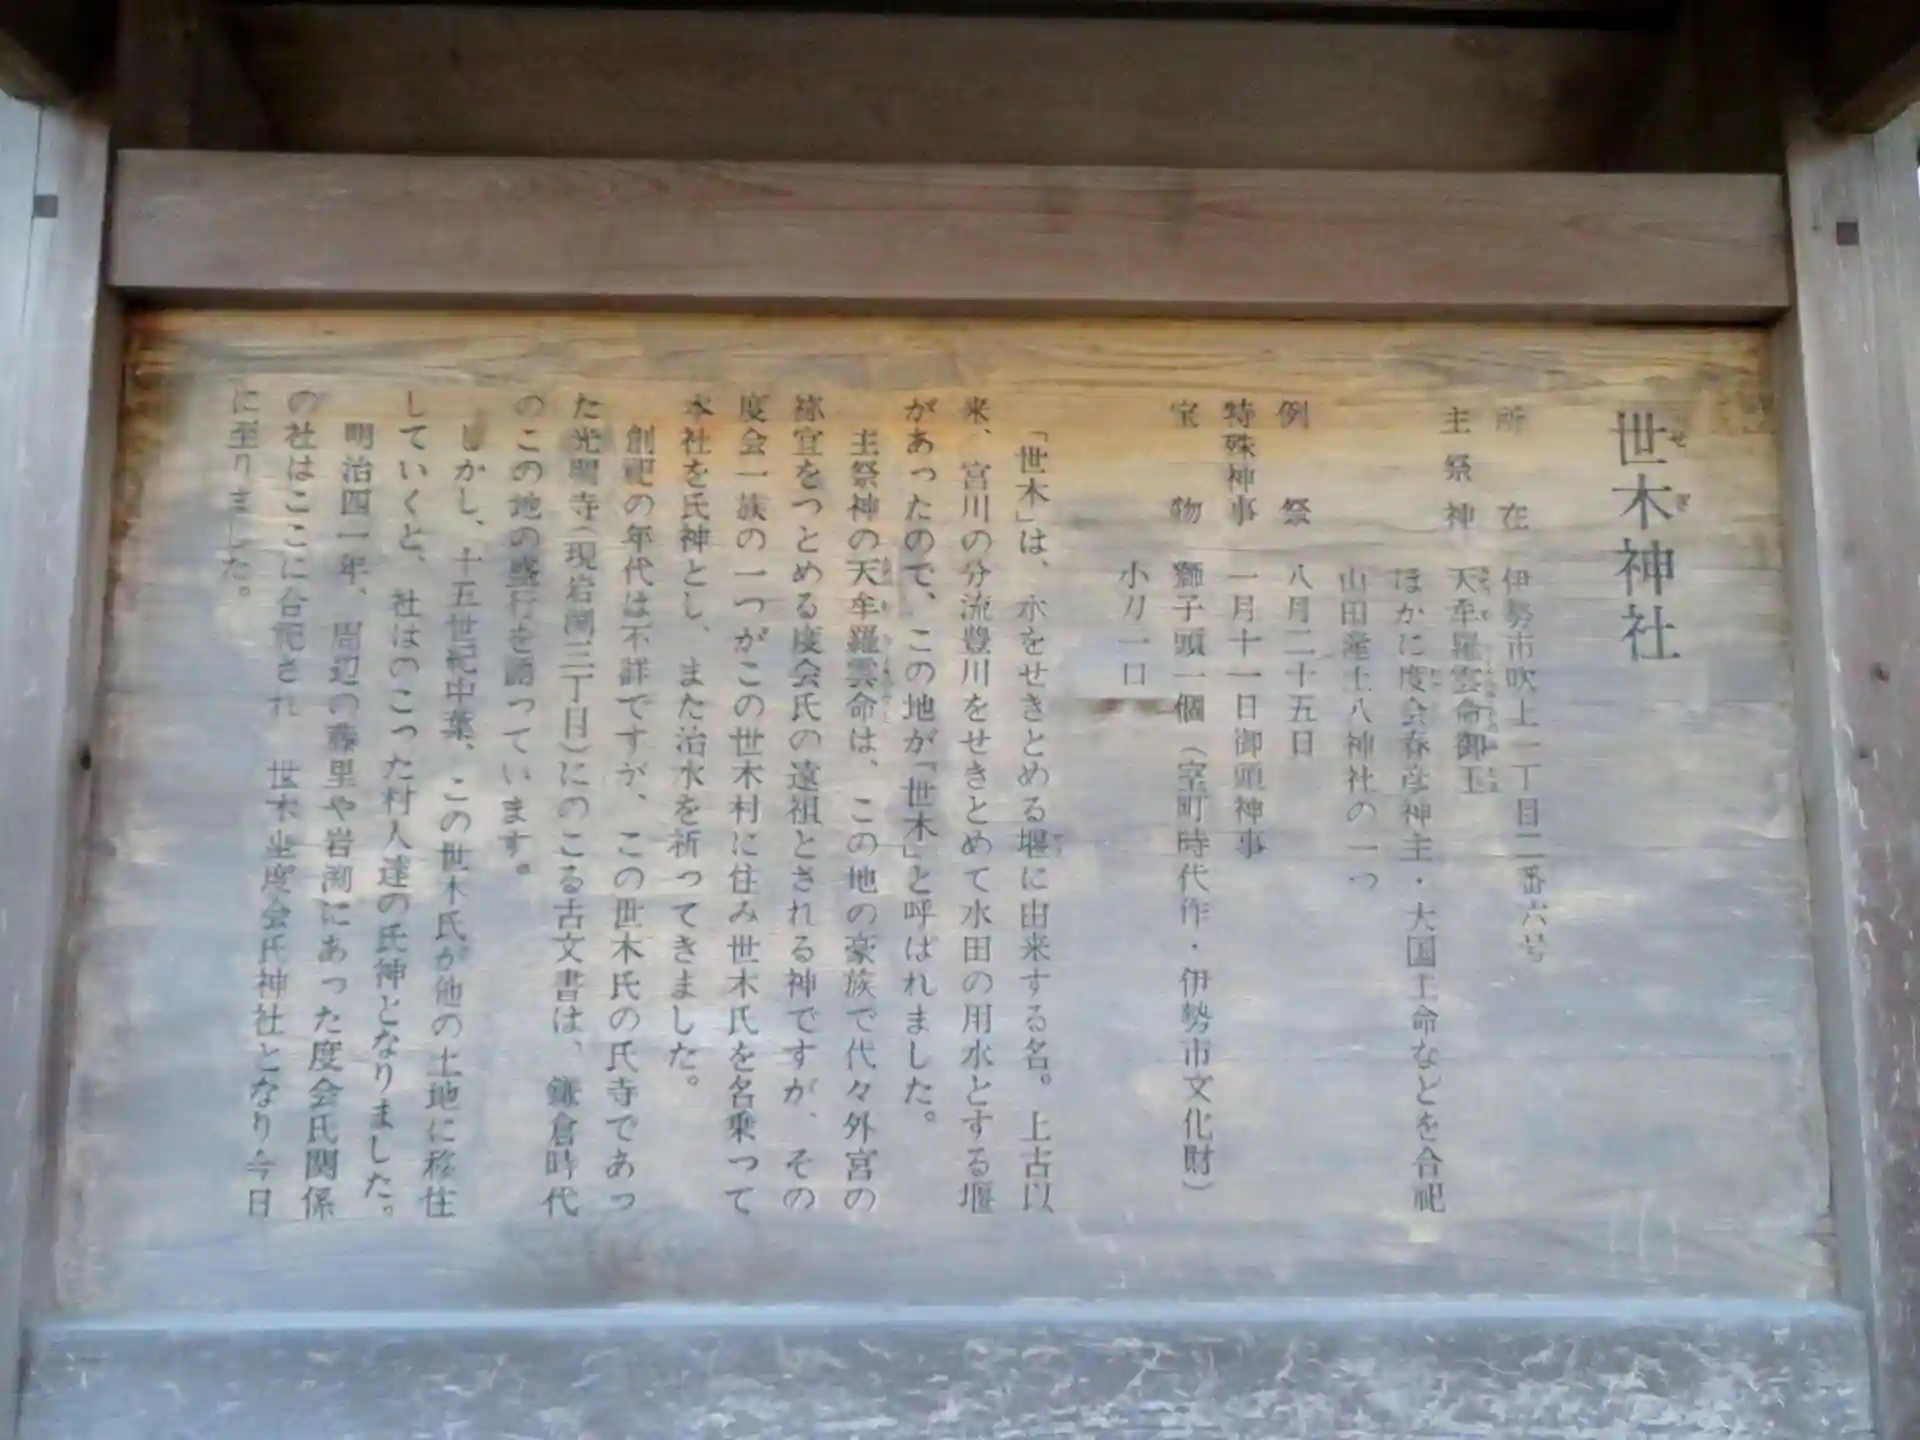 世木神社
所在 伊勢市吹上一丁目二番六号
主祭神 天牟羅雲命御玉
ほかに度会春彦神主・大国主命などを合祀
山田産土八神社の一つ
例祭 八月二十五日
特殊神事 一月十一日御頭神事
宝物 獅子頭一個（室町時代作・伊勢市文化財）
小刀一口
「世木」は、水をせきとめる堰に由来する名。上古以
来、宮川の分流豊川をせきとめて水田の用水とする堰
があったので、この地が「世木」と呼ばれました。
主祭神の天牟羅雲命は、この地の豪族で代々外宮の
祢宜をつとめる度会氏の遠祖とされる神ですが、その
度会一族の一つがこの世木村に住み世木氏を名乗って
本社を氏神とし、また治水を祈ってきました。
創祀の年代は不詳ですが、この世木氏の氏寺であっ
た光明寺（現岩渕三丁目）にのこる古文書は、鎌倉時代
のこの地の盛行を語っています。
しかし、十五世紀中葉、この世木氏が他の土地に移住
していくと、社はのこった村人達の氏神となりました。
明治四一年、周辺の藤里や岩渕にあった度会氏関係
の社はここに合祀され 世木坐度会氏神社となり今日
に至りました。